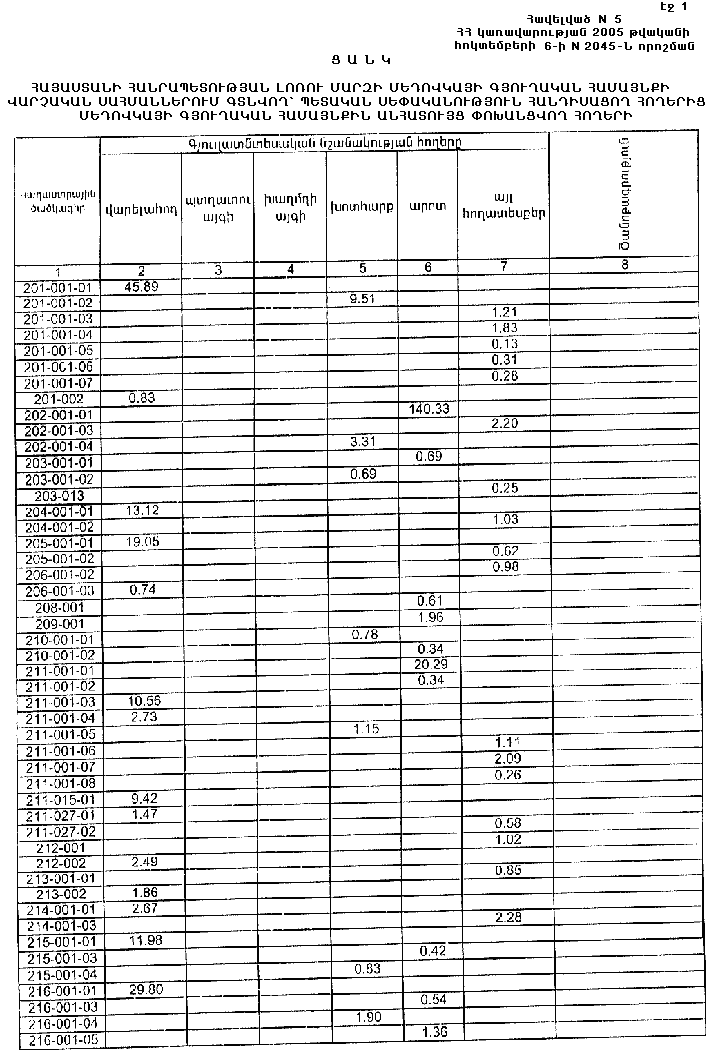 էջ 1
Հավելված N 5
ՀՀ կառավարության 2005 թվականի
հոկտեմբերի 6-ի N 2045-Ն որոշման
Ց Ա Ն Կ
ՀԱՅԱՍՏԱՆԻ ՀԱՆՐԱՊԵՏՈՒԹՅԱՆ ԼՈՌՈՒ ՄԱՐԶԻ ՄԵՂՈՎԿԱՅԻ ԳՅՈՒՂԱԿԱՆ ՀԱՄԱՅՆՔԻ
ՎԱՐՉԱԿԱՆ ՍԱՀՄԱՆՆԵՐՈՒՄ ԳՏՆՎՈՂ՝ ՊԵՏԱԿԱՆ ՍԵՓԱԿԱՆՈՒԹՅՈՒՆ ՀԱՆԴԻՍԱՑՈՂ ՀՈՂԵՐԻՑ
ՄԵՂՈՎԿԱՅԻ ԳՅՈՒՂԱԿԱՆ ՀԱՄԱՅՆՔԻՆ ԱՆՀԱՏՈՒՅՑ ՓՈԽԱՆՑՎՈՂ ՀՈՂԵՐԻ
Գյուղատնտեսական նշանակության հողերը
Կադաստրային ծածկագիր վարելահող պտղատու այգի խաղողի այգի խոտհարք արոտ այլ հողատեսքեր Ծանոթագրություն
1 2 3 4 5 6 7 8
201-001-01 45.89
201-001-02 9.51
201-001-03 1.21
201-001-04 1.83
201-001-05 0.13
201-001-06 0.31
201-001-07 0.28
201-002 0.83
202-001-01 140.33
202-001-03 2.20
202-001-04 3.31
203-001-01 0.69
203-001-02 0.69
203-013 0.25
204-001-01 13.12
204-001-02 1.03
205-001-01 19.05
205-001-02 0.62
206-001-02 0.98
206-001-03 0.74
208-001 0.61
209-001 1.96
210-001-01 0.78
210-001-02 0.34
211-001-01 20.29
211-001-02 0.34
211-001-03 10.56
211-001-04 2.73
211-001-05 1.15
211-001-06 1.11
211-001-07 2.09
211-001-08 0.26
211-015-01 9.42
211-027-01 1.47
211-027-02 0.58
212-001 1.02
212-002 2.49
213-001-01 0.85
213-002 1.86
214-001-01 2.67
214-001-03 2.28
215-001-01 11.98
215-001-03 0.42
215-001-04 0.83
216-001-01 29.80
216-001-03 0.54
216-001-04 1.90
216-001-05 1.36